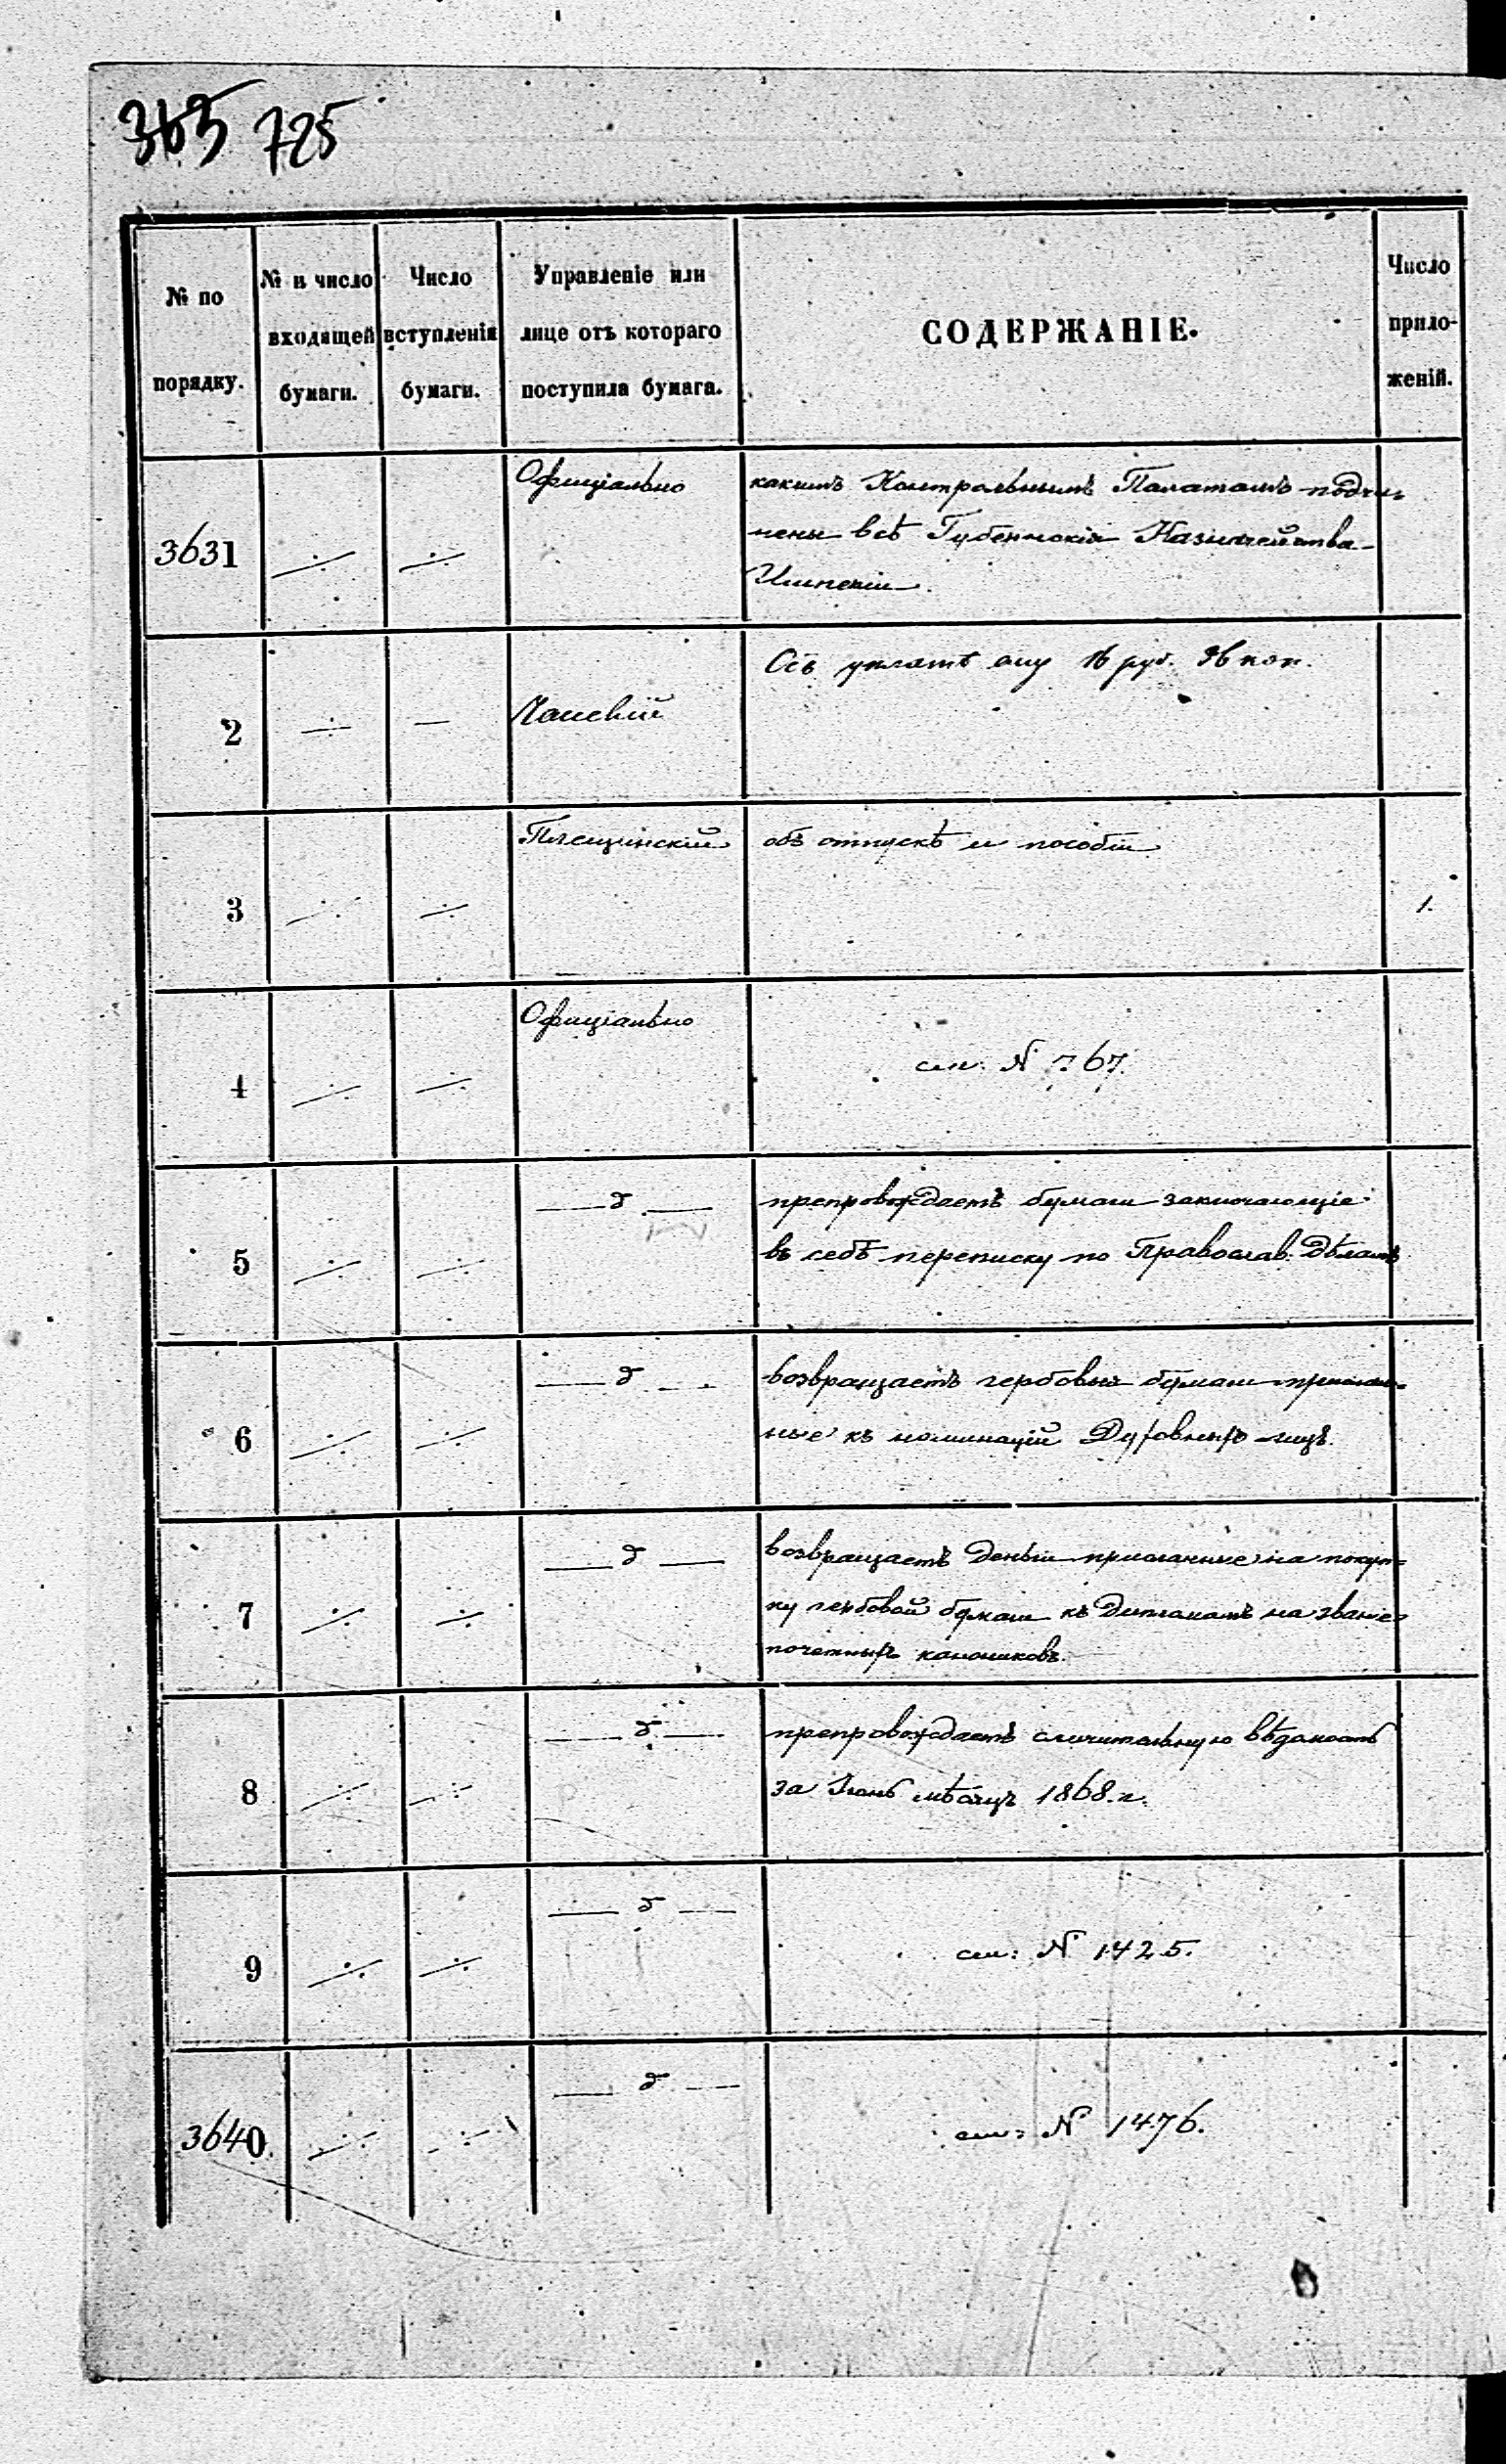 363 725
№ по порядку.
№ и число входящей бумаги.
Число вступленія бумаги.
Управленіе или лице отъ котораго поступила бумага.
СОДЕРЖАНІЕ.
Число прило-женій.
3631 ÷ ÷ Офиціально какимъ Контрольнымъ Палатамъ подчи-
нены всѣ Губернскія Казначейства
Имперіи.
2 ÷ — уплатѣ ему 16 руб. 36 коп.
3 ÷ ÷ объ отпускѣ и пособіи 1.
4 ÷ ÷ Офиціально см: N 767.
5 ÷ ÷ — д — препровождаетъ бумаги заключающіе
въ себѣ переписку по Православ: Дѣламъ
6 ÷ ÷ — д — возвращаетъ гербовыя бумаги
ные къ номинаціи Духовныхъ лицъ.
7 ÷ ÷ — д — возвращаетъ деньги присланные на покуп-
ку гербовой бумаги къ Дипломамъ на званіе
почетныхъ канониковъ.
8 ÷ ÷ — д — препровождаетъ сличительную вѣдомость
за Іюнь мѣсяцъ 1868 г.
9 ÷ ÷ — д — см: N 1425.
3640. ÷ ÷ — д — см: N 1476.